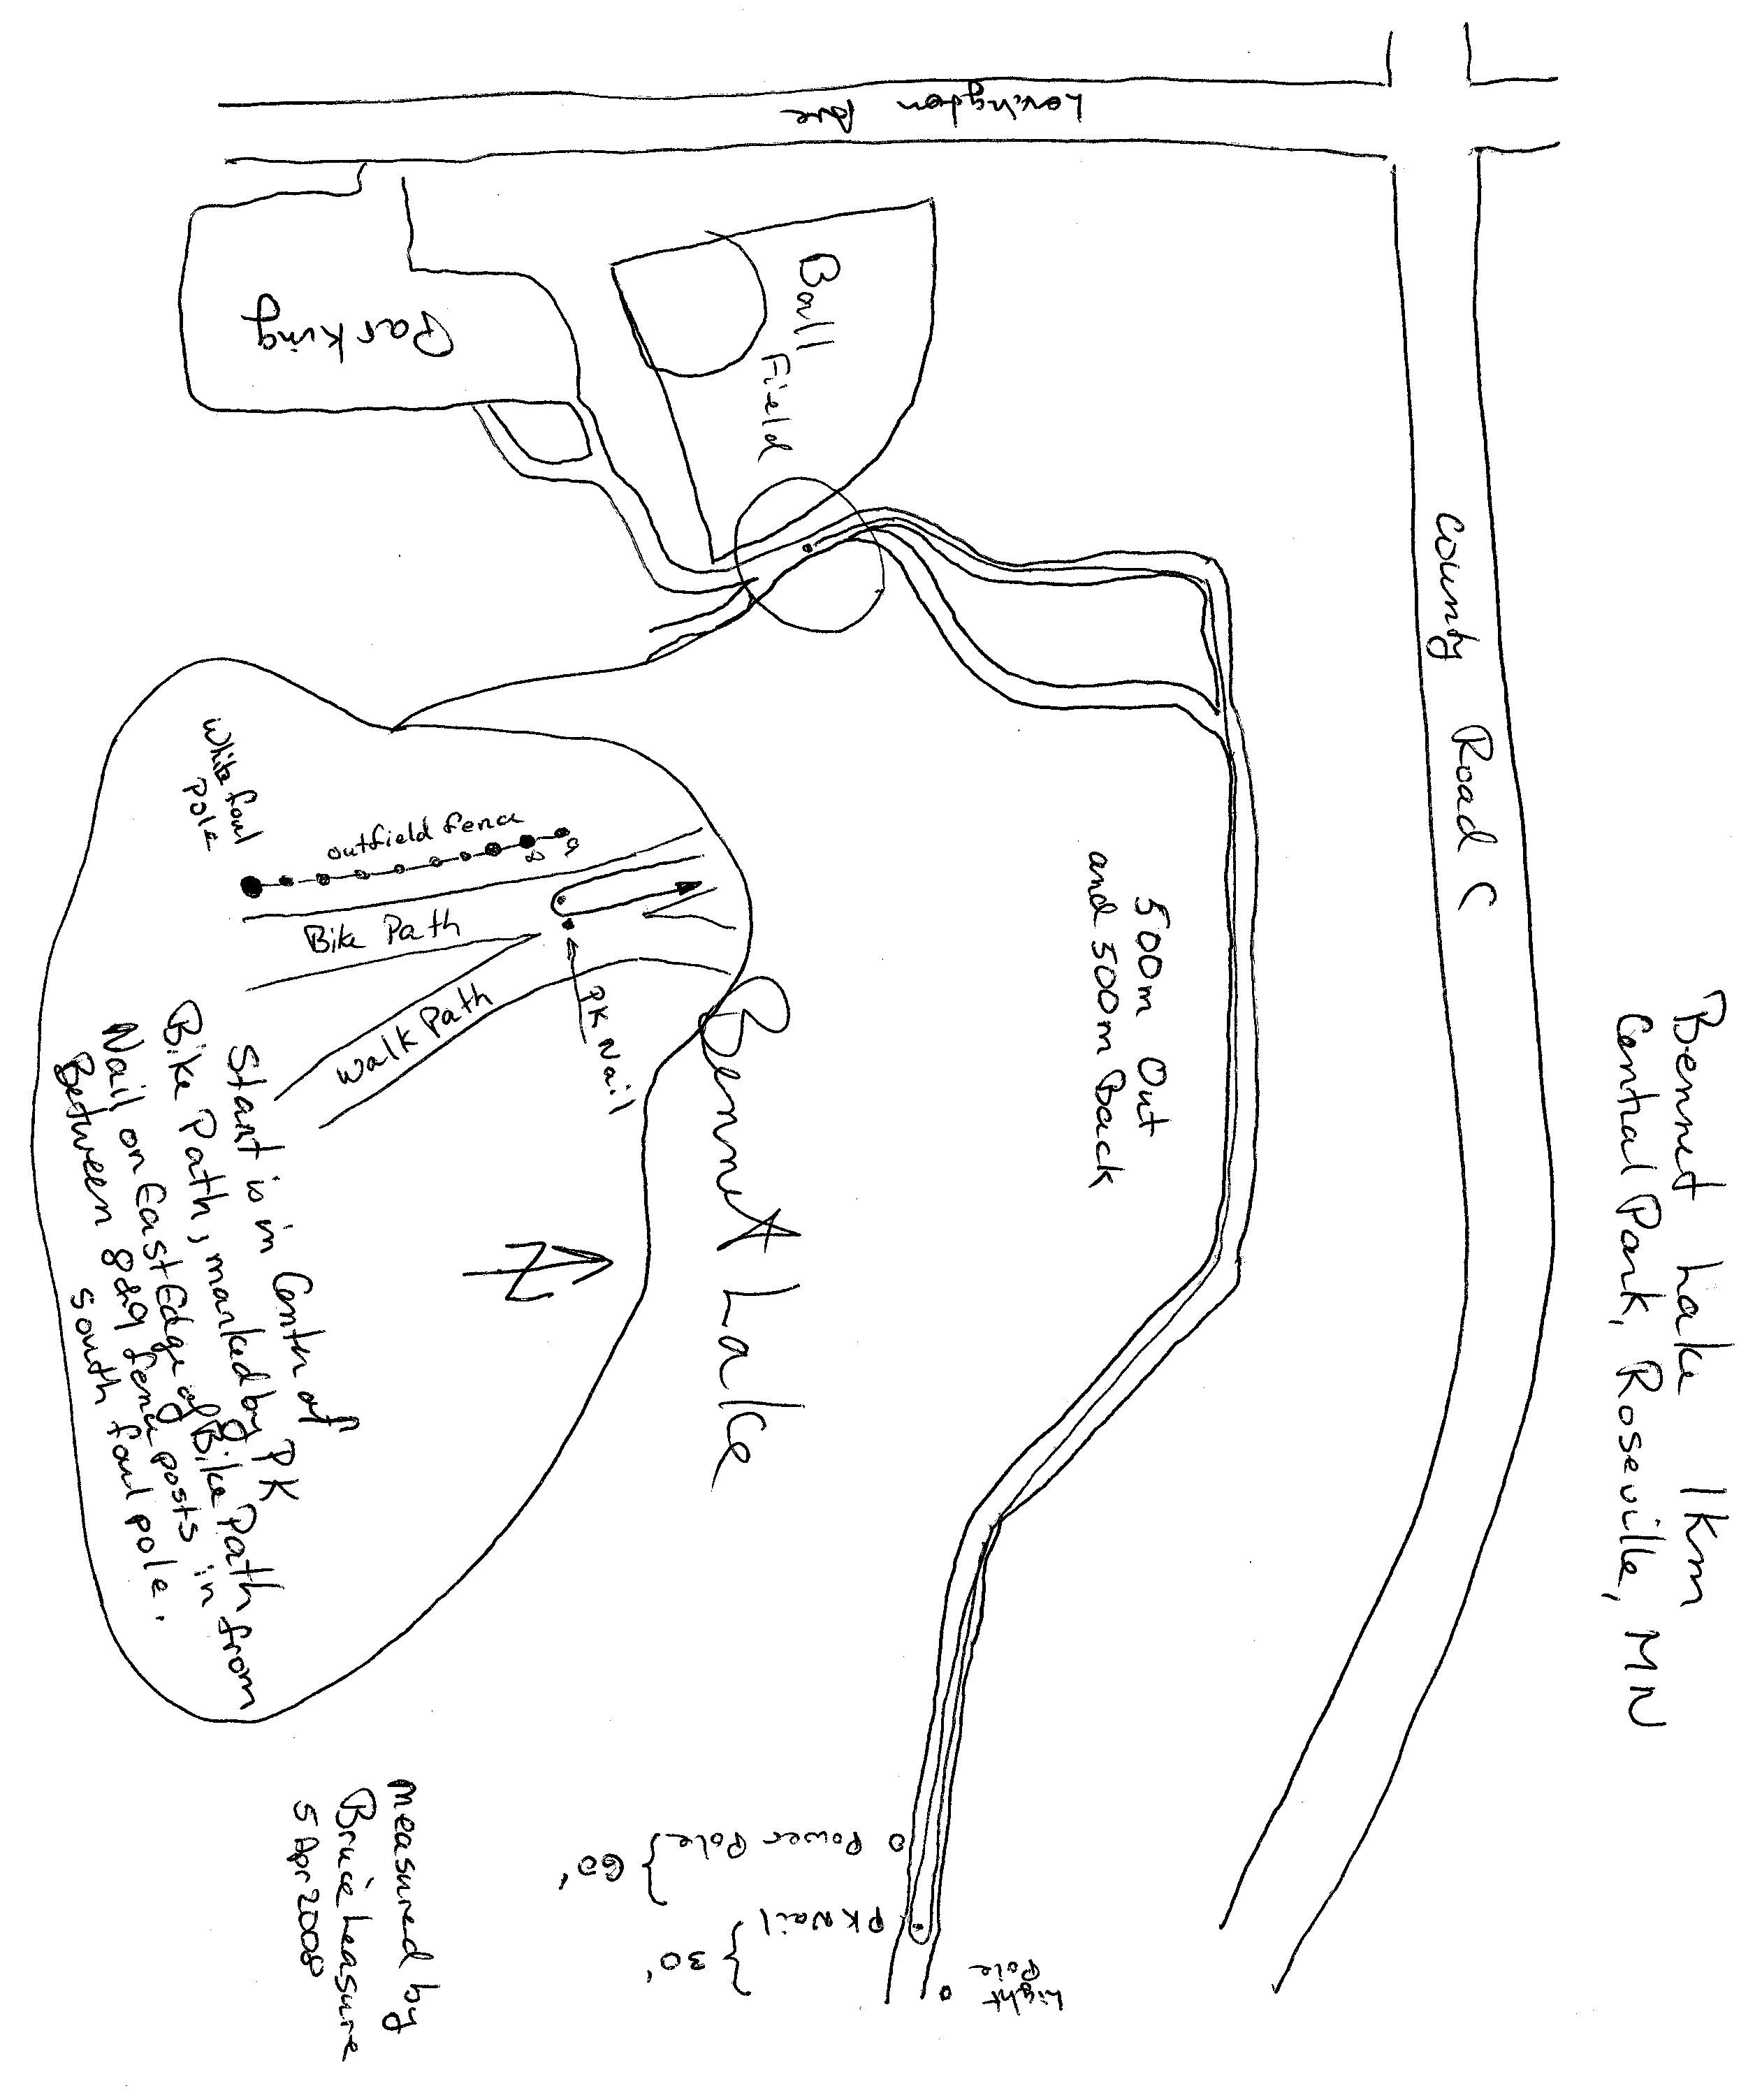 Bennet Lake 1km
Central Park, Roseville, MN
County Road C
Lexington Ave
Parking
Ball
Field
500m Out
and 500m Back
Bennet Lake
White foul
pole
outfield fence
8
9
Bike Path
Walk Path
PK Nail
N
Start is in Center of
Bike Path, marked by PK
Nail on East Edge of Bike Path from
Between 8&9 fence posts in
south foul pole.
Power Pole
60'
PK Nail
30'
Light
Pole
Measured by
Bruce Leasure
5 Apr 2008